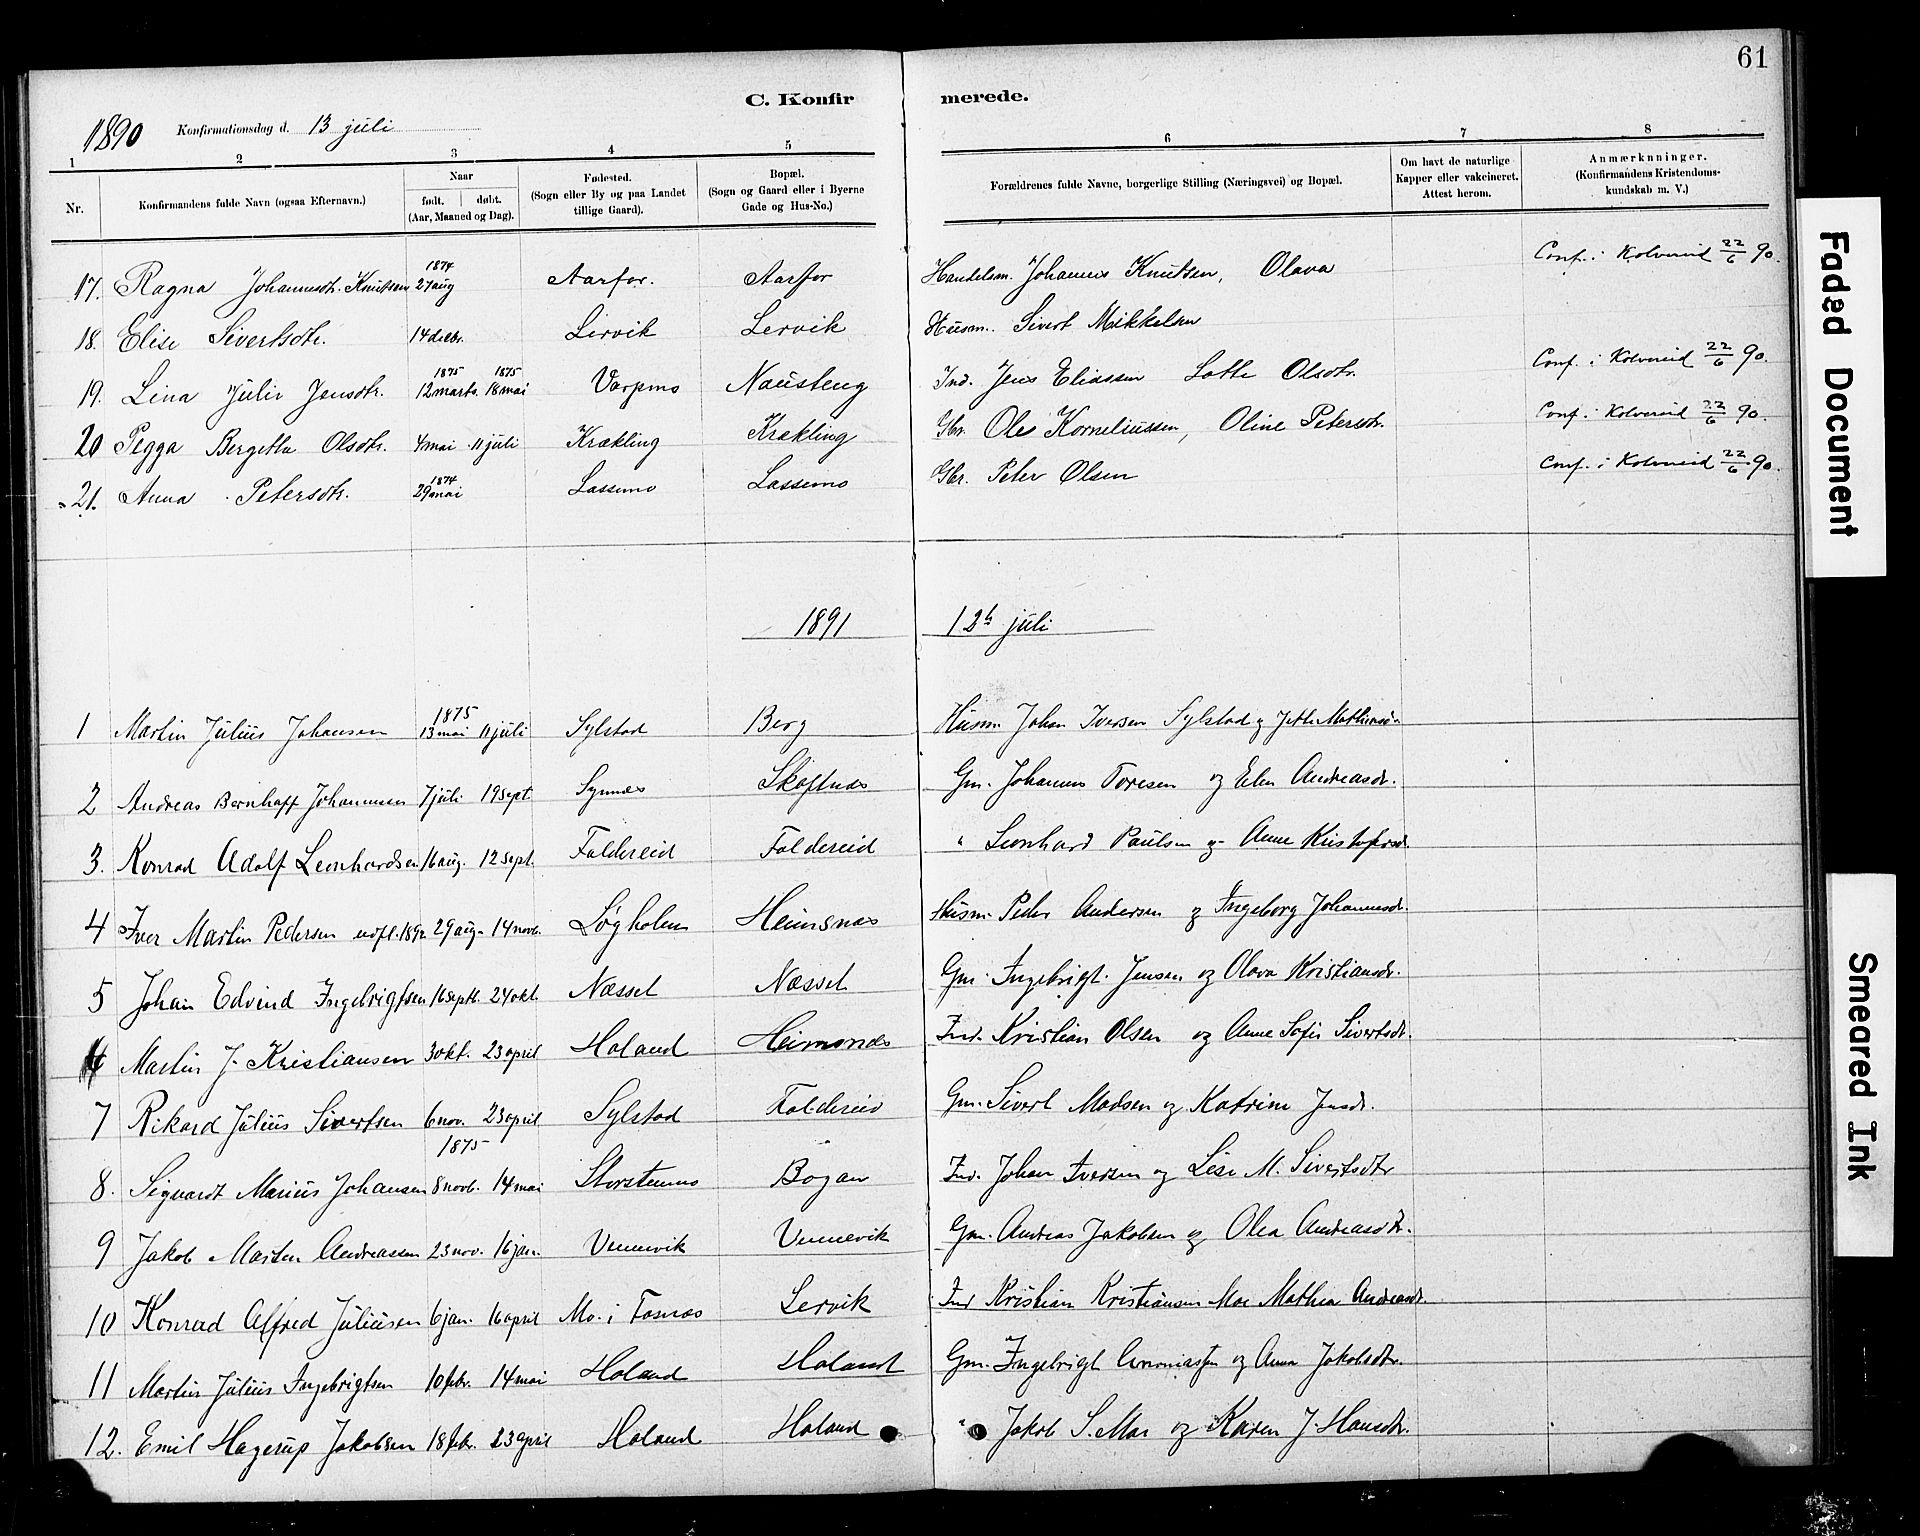 61
C. Konfirmerede.
1890 Konfirmationsdag d. 13 juli
1 2 3 4 5 6 7 8
Nr. Konfirmandens fulde Navn (ogsaa Efternavn.) Naar født. døbt. (Aar, Maaned og Dag). Fødested. (Sogn eller By og paa Landet tillige Gaard). Bopæl. (Sogn og Gaard eller i Byerne Gade og Hus-No.) Forældrenes fulde Navne, borgerlige Stilling (Næringsvei) og Bopæl. Om havt de naturlige Kapper eller vakcineret. Attest herom. Anmærkninger. (Konfirmandens Kristendoms-kundskab m. V.)
17. Ragna Johannesdtr. Knutsen 1874 27 aug Aarfor. Aarfor Handelsm. Johannes Knutsen, Olava Conf. i Kolvereid 22/6 90.
18. Elise Sivertsdtr. 14 decbr. Lervik Lervik Husm. Sivert Mikkelsen
19. Lina Julie Jensdtr. 1875 12 marts. 1875 18 mai Varpmo Nausteng Ind. Jens Eliassen Lotte Olsdtr. Conf. i Kolvereid 22/6 90.
20 Pegga Bergetha Olsdtr. 4 mai 11 juli Krækling Krækling Gbr. Ole Korneliussen, Oline Petersdtr. Conf. i Kolvereid 22/6 90.
21. Anna Petersdtr. 1874 29 mai Lassemo Lassemo Gbr. Peter Olsen Conf. i Kolvereid 22/6 90.
1891 12te juli
1 Martin Julius Johansen 1875 13 mai 11 juli Sylstad Berg Husm. Johan Iversen Sylstad og
2 Andreas Bernhoff Johannesen 7 juli 19 sept Synnes Skoftnes Gm. Johannes Toresen og Elen Andreasdr.
3. Konrad Adolf Leonhardsen 16 aug. 12 sept. Foldereid Foldereid " Leonhard Paulsen og Anne Kristofersdr.
4 Iver Martin Pedersen 29 aug. 14 novb. Løgholen Heimsnes Husm. Peder Andersen og Ingeborg Johannesdr.
5 Johan Edvind Ingebrigtsen 16 septb. 24 okt. Næsset Næsset Gm. Ingebrigt Jensen og Olava Kristiansdr.
Martin J. Kristiansen 3 okt. 23 april Holand Heimsnes Ind. Kristian Olsen og Anne Sofie Sivertsdr.
7 Rikard Julius Sivertsen 6 nov. 23 april Sylstad Foldereid Gm. Sivert Madsen og Katrine Jensdr.
8. Sigvardt Marius Johansen 1875 8 novb. 14 mai Storstenmo Bogan Ind. Johan Iversen og Lise M. Sivertsdtr
9 Jakob Martin Andreassen 23 nov. 16 jan. Vennevik Vennevik Gm. Andreas Jakobsen og Olea Andreasdtr.
10 Konrad Alfred Juliusen 6 jan. 16 april Mo. i Fosnæs Lervik Ind Kristian Kristiansen Moe Mathea Andreasdr.
11 Martin Julius Ingebrigtsen 10 febr. 14 mai Holand Holand Gm. Ingebrigt og Anna Jakobsdtr.
12. Emil Hagerup Jakobsen 18 febr. 23 april Holand Holand " Jakob S. Moe og Karen J. Hansdtr.
Faded Document
Smeared Ink